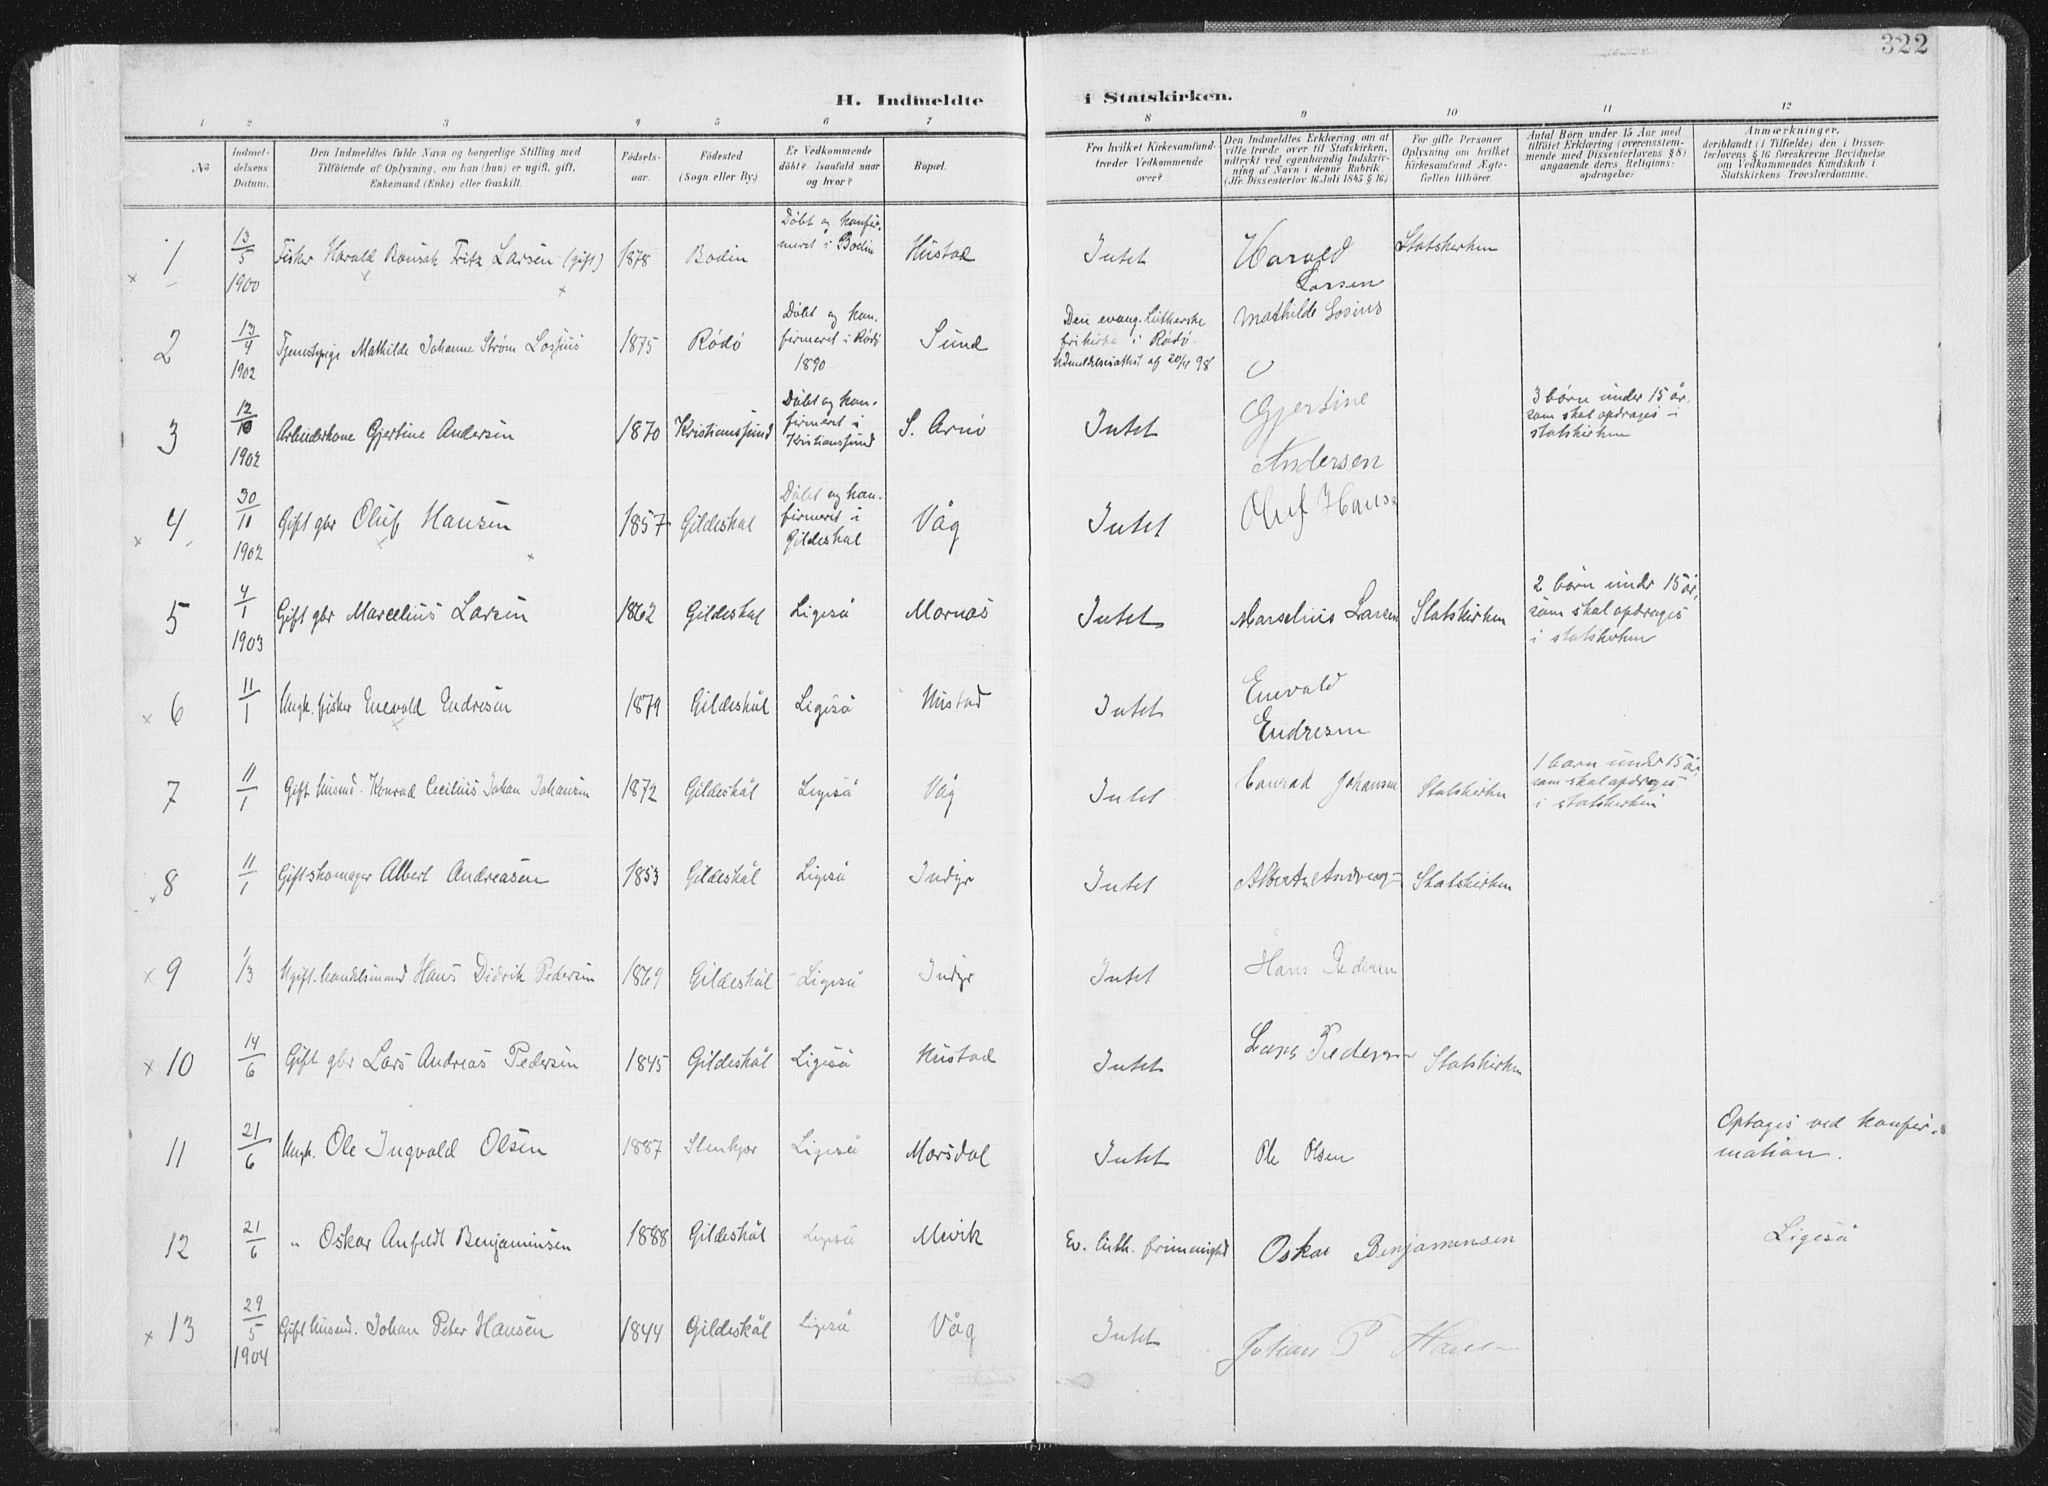 322
H. Indmeldte i Statskirken.
1 2 3 4 5 6 7 8 9 10 11 12
No
Indmel-
delsens
Datum.
Den Indmeldtes fulde Navn og borgerlige Stilling med
Tilföiende af Oplysning, om han (hun) er ugift, gift,
Enkemand (Enke) eller fraskilt.
Födsels-
aar.
Födested
(Sogn eller By.)
Er Vedkommende
döbt? isaafald naar
og hvor?
Bopæl.
Fra hvilket Kirkesamfund
træder Vedkommende
over?
Den Indmeldtes Erklæring om at
ville træde over til Statskirken,
udtrykt ved egenhændig Indskriv-
ning af Navn i denne Rubrik.
(Jfr. Dissenterlov 16 Juli 1845 § 16)
For gifte Personer
Oplysning om hvilket
Kirkesamfund Ægte-
fællen tilhörer
Antal Börn under 15 Aar med
tilföiet Erklæring (overensstem-
mende med Dissenterlovens § 8)
angaaende deres Religions-
opdragelse?
Anmærkninger,
deriblandt (i Tilfælde) den i Dissen-
terlovens § 16 foreskrevne Bevidnelse
om Vedkommendes Kundskab i
Statskirkens Troeslærdomme.
1 13/5 1900 Fisker Harald Fritz Larsen (gift) 1878 Bodin Döbt og konfir-
meret i Bodin Hustad Intet Harald Larsen Statskirken
2 13/4 1902 Tjenestepige Mathilde Johanne Strøm Lossius 1875 Rödö Döbt og kon-
firmeret i Rödö
1890 Sund Den evang. Lutherske
frikirke i Rödö.
Udmeldelsesattest af 20/4 98 Mathilde Losius
3 12/10 1902 Arbeiderkone Gjertine Andersen 1870 Kristianssund Döbt og kon-
firmeret i
Kristianssund S. Arnö Intet Gjertine Andersen 3 børn under 15 år,
som skal opdrages i
statskirken
4 30/11 1902 Gift gbr Oluf Hansen 1857 Gildeskal Döbt og kon-
firmeret i
Gildeskal Våg Intet Oluf Hansen
5 4/1 1903 Gift gbr Marcelius Larsen 1862 Gildeskal Ligeså Mornås Intet Marselius Larsen Statskirken 2 børn under 15 år,
som skal opdrages
i statskirken
6 11/1 Ungk. fisker Enevald Endresen 1879 Gildeskål Ligeså Hustad Intet Enevald Endresen
7 11/1 Gift husmd. Konrad Cecilius Johan Johansen 1872 Gildeskål Ligeså Våg Intet Conrad Johansen Statskirken 1 barn under 15 år,
som skal opdrages
i statskirken
8 11/1 Gift skomager Albert Andreasen 1853 Gildeskål Ligeså Indyr Intet Statskirken
9 1/3 Ugift handelsmand Hans Didrik Pedersen 1869 Gildeskål Ligeså Indyr Intet Hans Pedersen
10 14/6 Gift gbr Lars Andreas Pedersen 1845 Gildeskål Ligeså Hustad Intet Lars Pedersen Statskirken
11 21/6 Ungk. Ole Ingvald Olsen 1887 Stenkjær Ligeså Morsdal Intet Ole Olsen Optages ved konfir-
mation.
12 21/6 " Oskar Anfeldt Benjaminsen 1888 Gildeskål Ligeså Mevik Ev. luth. frimenighed Oskar Benjamensen Ligeså
13 29/5 1904 Gift husmd. Johan Peter Hansen 1844 Gildeskål Ligeså Våg Intet Johan P Hansen